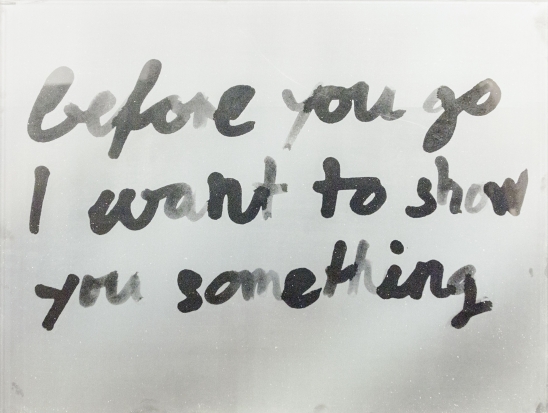 before you go
I want to show
you something